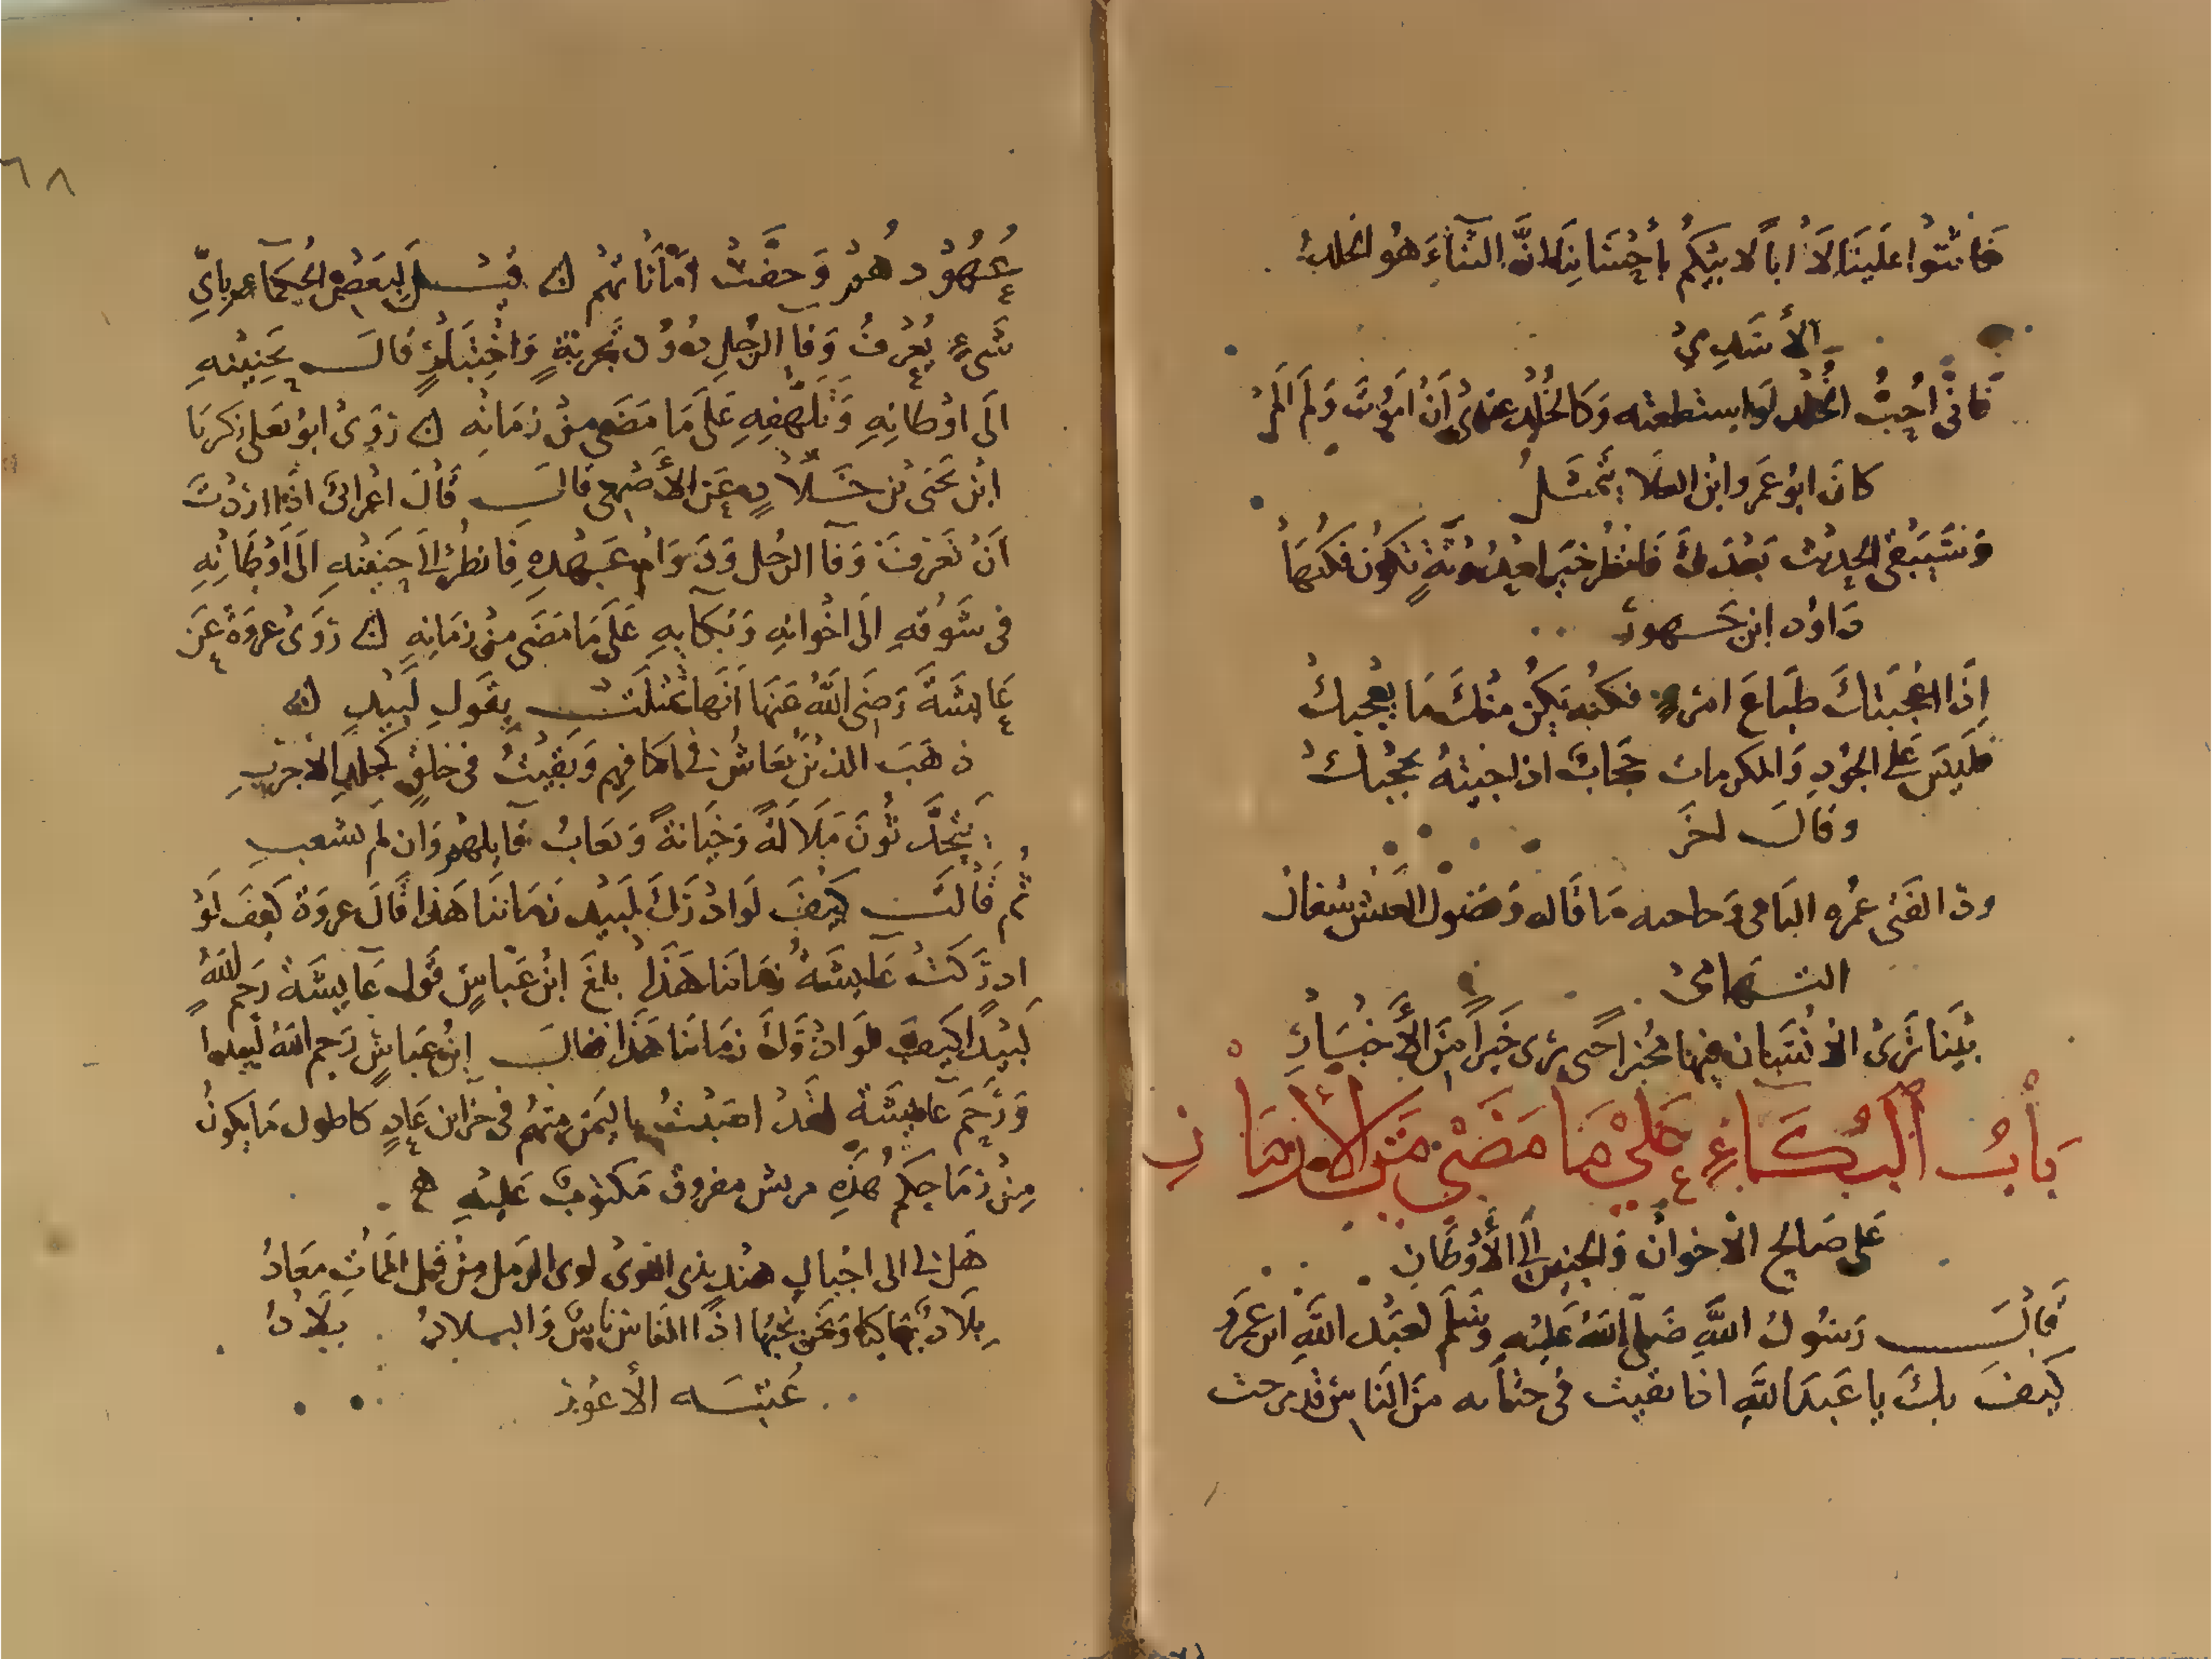 فاثنوا علينا لا أبا لابيكم بأحسابنا إن الثناء هو الخلد
الأسدي
فاني أحب الخلد لو استطعته وكالخلد عندي أن أموت ولم ألم
كان ابو عمرو ابن العلا يتمثل
وسيبقى الحديث بعدك فانظر خير احدوثة تكون فكنها
داود ابن جهور
إذا اعجبتك طباع امرئ فكنه يكن منك ما يعجبك
فليس على الجود والمكرمات حجاب اذا جيته يحجبك
وقال اخر
ذكر الفتى عمره الثاني وحاجته ما قاته وفضول العيش اشغال
التهامي
بينا ترى الانسان فيها مخبرا حتى يرى خبرا من الأخبار
باب البكاء على ما مضى من الأزمان
على صالح الاخوان والحنين إلى الأوطان
قال رسول الله صلى الله عليه وسلم لعبد الله ابن عمرو
كيف بك يا عبد الله اذا بقيت في حثالة من الناس قد مرجت
٦٨
عهودهم وخفت أماناتهم قيل لبعض الحكماء باي
شيء يعرف وفا الرجل دون تجربة واختبار قال بحنينه
الى اوطانه وتلهفه على ما مضى من زمانه روى ابو يعلى زكريا
ابن يحيى بن خلاد عن الأصمعي قال قال اعرابي اذا اردت
أن تعرف وفا الرجل ودوام عهده فانظر إلى حنينه الى أوطانه
في شوقه الى اخوانه وبكايه على ما مضى من زمانه روى عروة عن
عايشة رضي الله عنها أنها تمثلت بقول لبيد
ذهب الذين يعاش في اكنافهم وبقيت في خلف كجلد الأجرب
يتحدثون ملالة وخيانة ويعاب قايلهم وان لم يشعب
ثم قالت كيف لو ادرك لبيد زماننا هذا قال عروة كيف لو
ادركت عايشة زماننا هذا بلغ ابن عباس قول عايشة رحم الله
لبيدا كيف لو ادرك زماننا هذا فقال ابن عباس رحم الله لبيدا
ورحم عايشة لقد اصبت باليمن سهم في خزاين عاد كاطول ما يكون
من رماحكم هذه مريش مفوق مكتوب عليه
هل لي الى اجبال هند بذي اللوى لوى الرمل من قبل الممات معاد
بلاد بها كنا ونحن نحبها اذ الناس ناس والبلاد بلاد
عنبسه الأعور